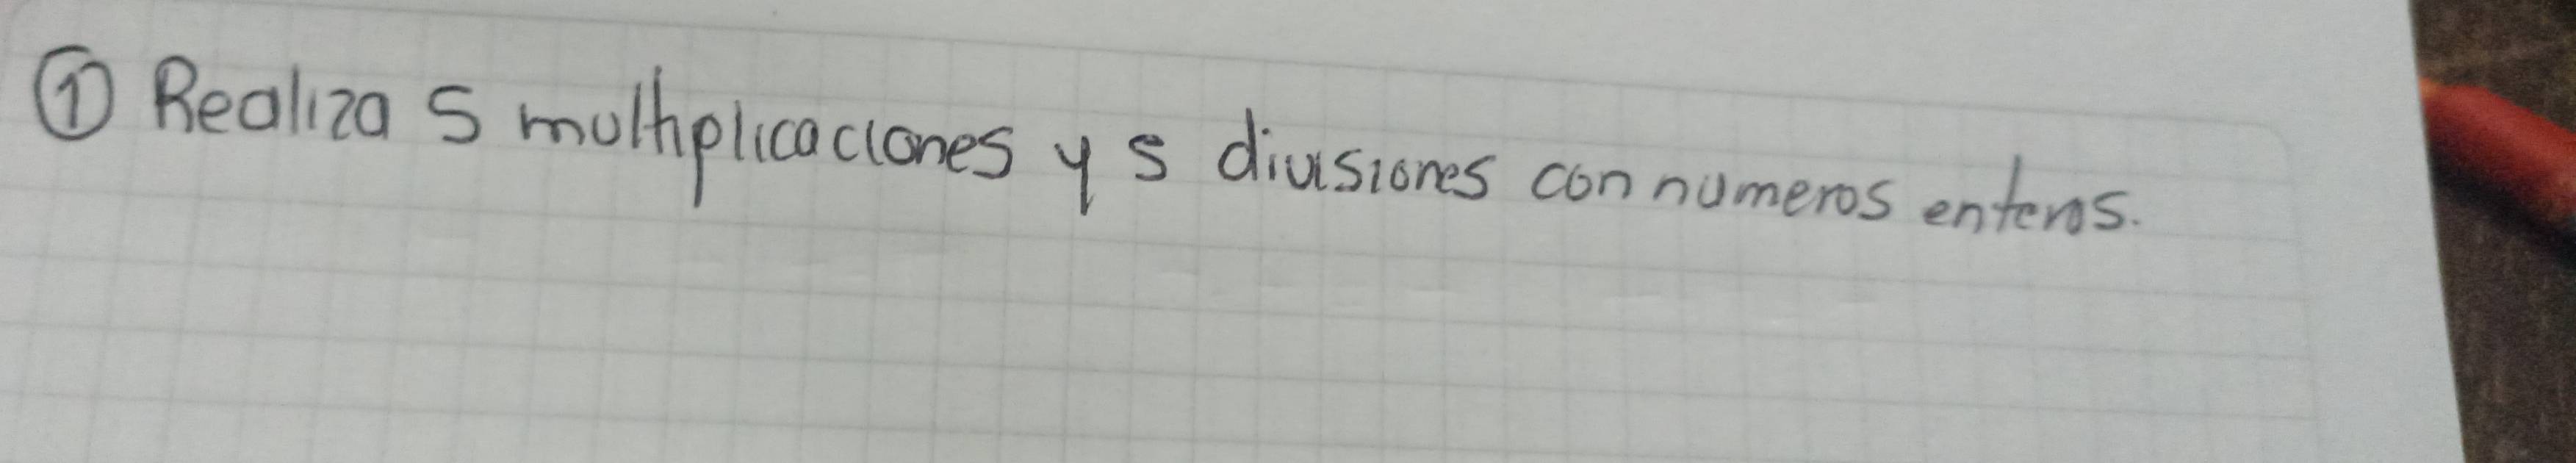 ① Realiza 5 multiplicaciones y 5 divisiones con numeros enteros.